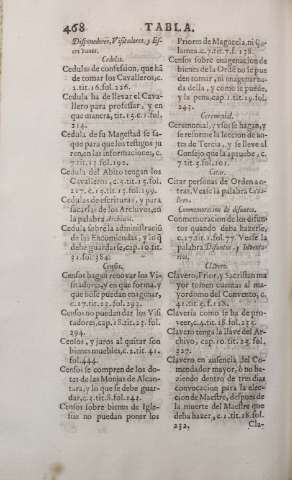 468 TABLA.
Difinidores, Visitadores, y Es-
crivanos.
Cedulas.
Cedulas de confession, que hã
de tomar los Cavalleros, c.
2. tit. 16. fol. 226.
Cedula ha de llevar el Cava-
llero para professar, y en
que manera, tit. 15. c. 1. fol.
214.
Cedula de su Magestad se sa-
que para que los testigos ju
ren, en las informaciones, c.
7. tit. 13. fol. 192.
Cedula del Abito tengan los
Cavalleros, c. 7. tit. 15. fol.
217. c. 5. tit. 13. fol. 199.
Cedulas de escrituras, y para
sacarlas de los Archivos, en
la palabra Archivo.
Cedula sobre la administració
de las Encomiendas, y lo q̃
debe guardarse, cap. 10. tit.
31. fol. 384.
Censos.
Censos hagan renovar los Vi-
sitadores, y en que forma, y
que no se puedan enagenar,
c. 27. tit. 23. fol. 292.
Censos no puedan dar los Visi
tadores, cap. 28. tit. 23. fol.
294.
Censos, y juros al quitar son
bienes muebles, c. 2. tit. 41.
fol. 444.
Censos se compren de los do-
tes de las Monjas de Alcan-
tara, y lo que se debe guar-
dar, c. 2. tit. 8. fol. 141.
Censos sobre bienes de Igle-
sias no puedan poner los
Priores de Magacela, ni Ça-
lamea. c. 7. tit. 7. f. 128.
Censos sobre enagenacion de
bienes de la Ordẽ no se pue
den tomar, ni enagenar na-
da della, y como se puede,
y la pena, cap. 1. tit. 19. fol.
243.
Ceremonial.
Ceremonial, y vsos se hagan, y
se reforme la leccion de an-
tes de Tercia, y se lleve al
Consejo que la apruebe, c.
7. tit. 1. fol. 101.
Citar.
Citar personas de Orden a o-
tras. Vease la palabra Caval
lero.
Conmemoracion de difuntos.
Conmemoracion de los difun
tos quando deba hazerse,
c. 17. tit. 1. fol. 77. Vease la
palabra Difuntos
Clavero.
Clavero, Prior, y Sacristan ma
yor tomen cuentas al ma-
yordomo del Convento, c.
41. tit. 4. f. 128.
Claveria como se ha de pro-
veer, c. 4. tit. 18. fol. 235.
Clavero tenga la llave del Ar-
chivo, cap. 10. tit. 25. fol.
327.
Clavero en ausencia del Co-
mendador mayor, ò no ha-
ziendo dentro de tres dias
convocacion para la elec-
cion de Maestre, despues de
la muerte del Maestre que
deba hazer, c. 1. tit. 18. fol.
232. Cla-